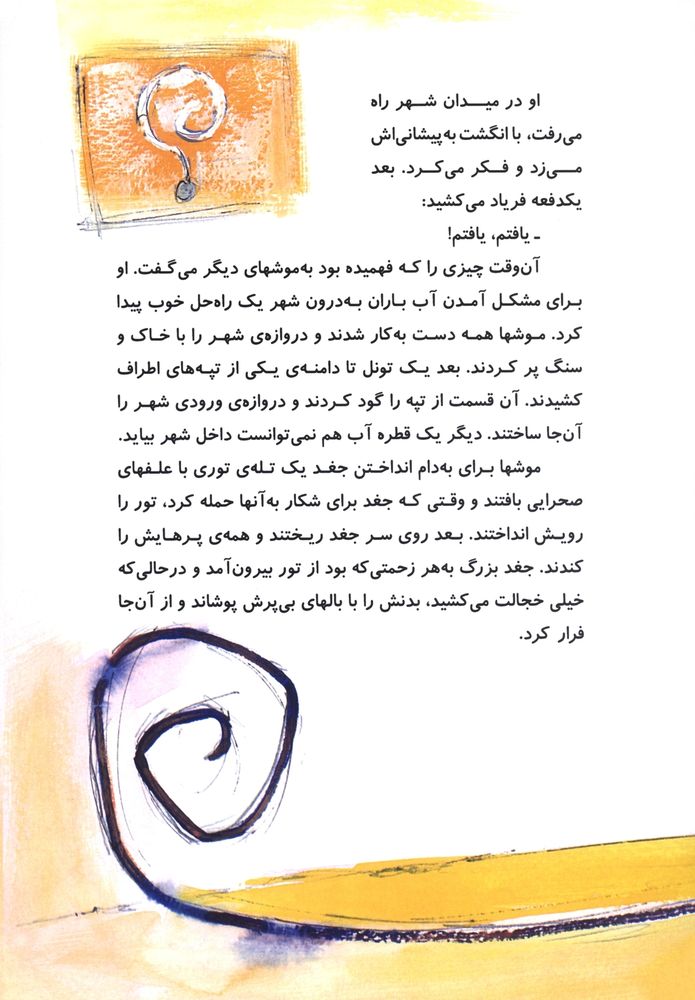 او در میدان شهر راه
می‌رفت، با انگشت به‌پیشانی‌اش
می‌زد و فکر می‌کرد. بعد
یکدفعه فریاد می‌کشید:
ـ یافتم، یافتم!
آن‌وقت چیزی را که فهمیده بود به‌موشهای دیگر می‌گفت. او
برای مشکل آمدن آب باران به‌درون شهر یک راه‌حل خوب پیدا
کرد. موشها همه دست به‌کار شدند و دروازه‌ی شهر را با خاک و
سنگ پر کردند. بعد یک تونل تا دامنه‌ی یکی از تپه‌های اطراف
کشیدند. آن قسمت از تپه را گود کردند و دروازه‌ی ورودی شهر را
آن‌جا ساختند. دیگر یک قطره آب هم نمی‌توانست داخل شهر بیاید.
موشها برای به‌دام انداختن جغد یک تله‌ی توری با علفهای
صحرایی بافتند و وقتی که جغد برای شکار به‌آنها حمله کرد، تور را
رویش انداختند. بعد روی سر جغد ریختند و همه‌ی پرهایش را
کندند. جغد بزرگ به‌هر زحمتی‌که بود از تور بیرون‌آمد و درحالی‌که
خیلی خجالت می‌کشید، بدنش را با بالهای بی‌پرش پوشاند و از آن‌جا
فرار کرد.